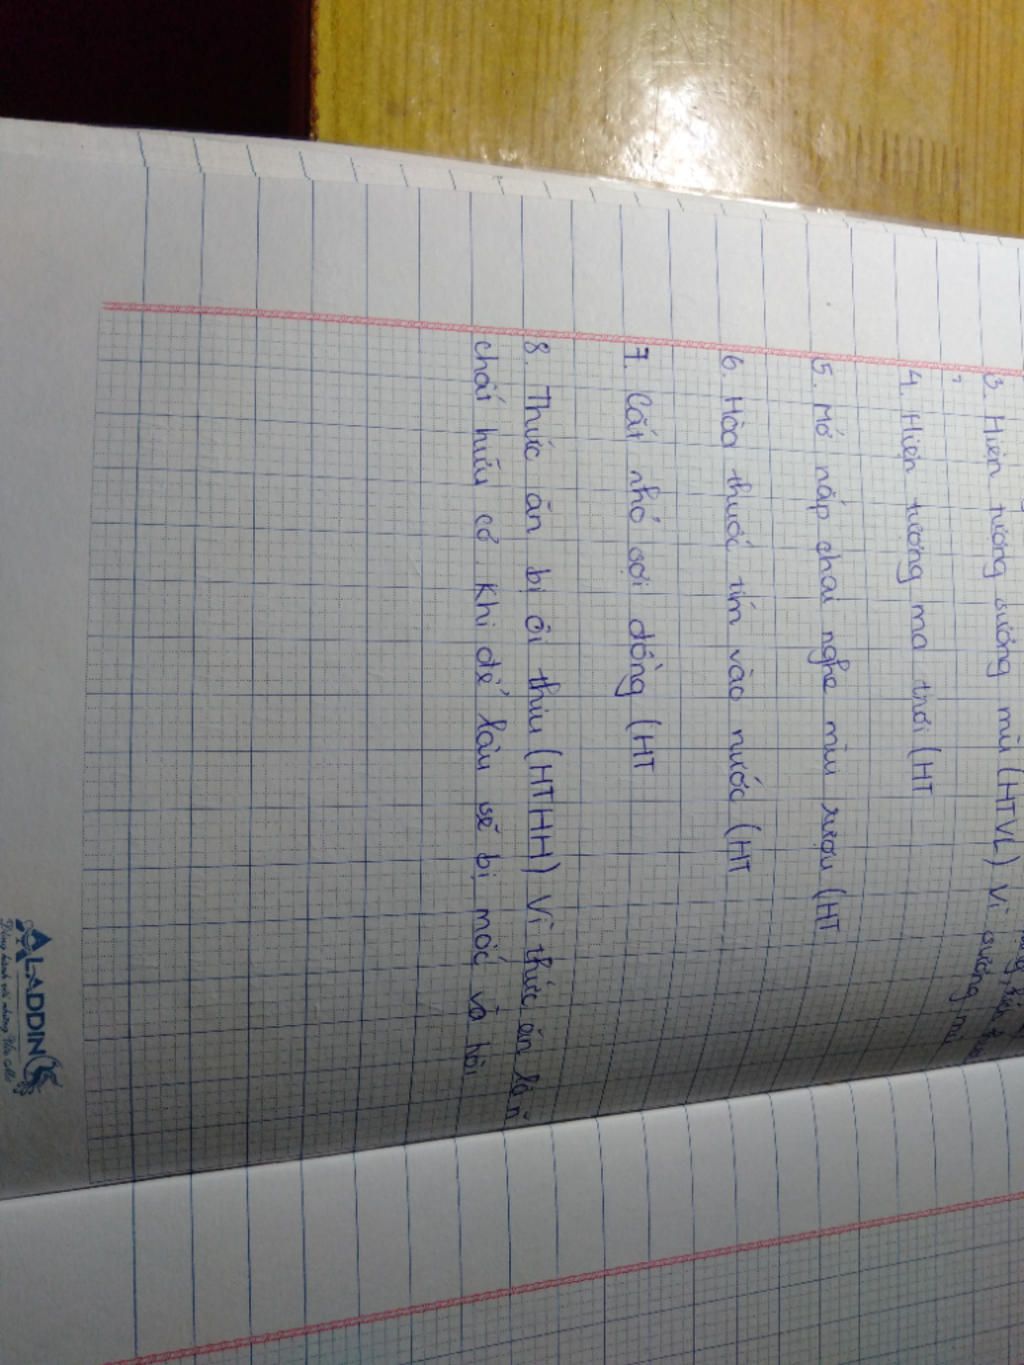 3. Hiện tượng sương mù (HTVL) Vì sương mù
4. Hiện tượng ma trơi (HT
5. Mở nắp chai nghe mùi rượu (HT
6. Hòa thuốc tím vào nước (HT
7. Cắt nhỏ sợi đồng (HT
8. Thức ăn bị ôi thiu (HTHH) Vì thức ăn là
chất hữu cơ khi để lâu sẽ bị mốc và hôi
ALADDIN